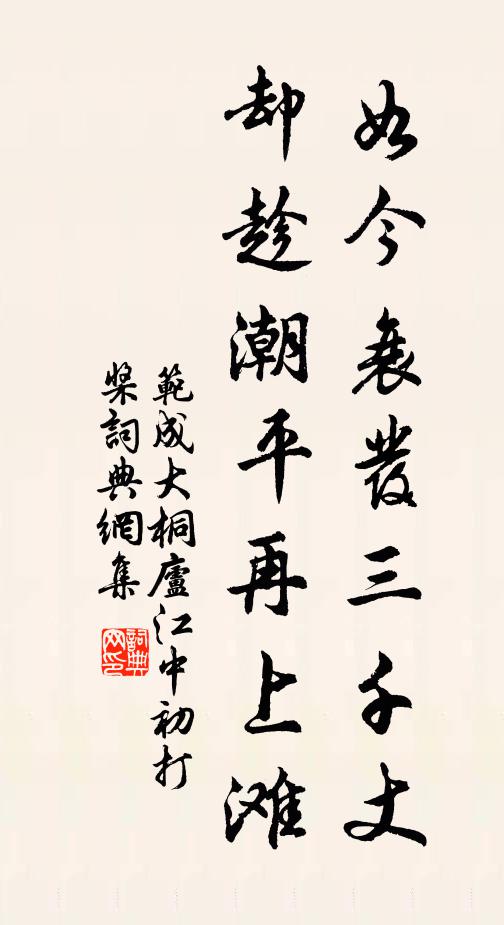 如今衰發三千丈
却趁潮平再上滩
範成大桐廬江中初打
槳詞典網集
詞典网印